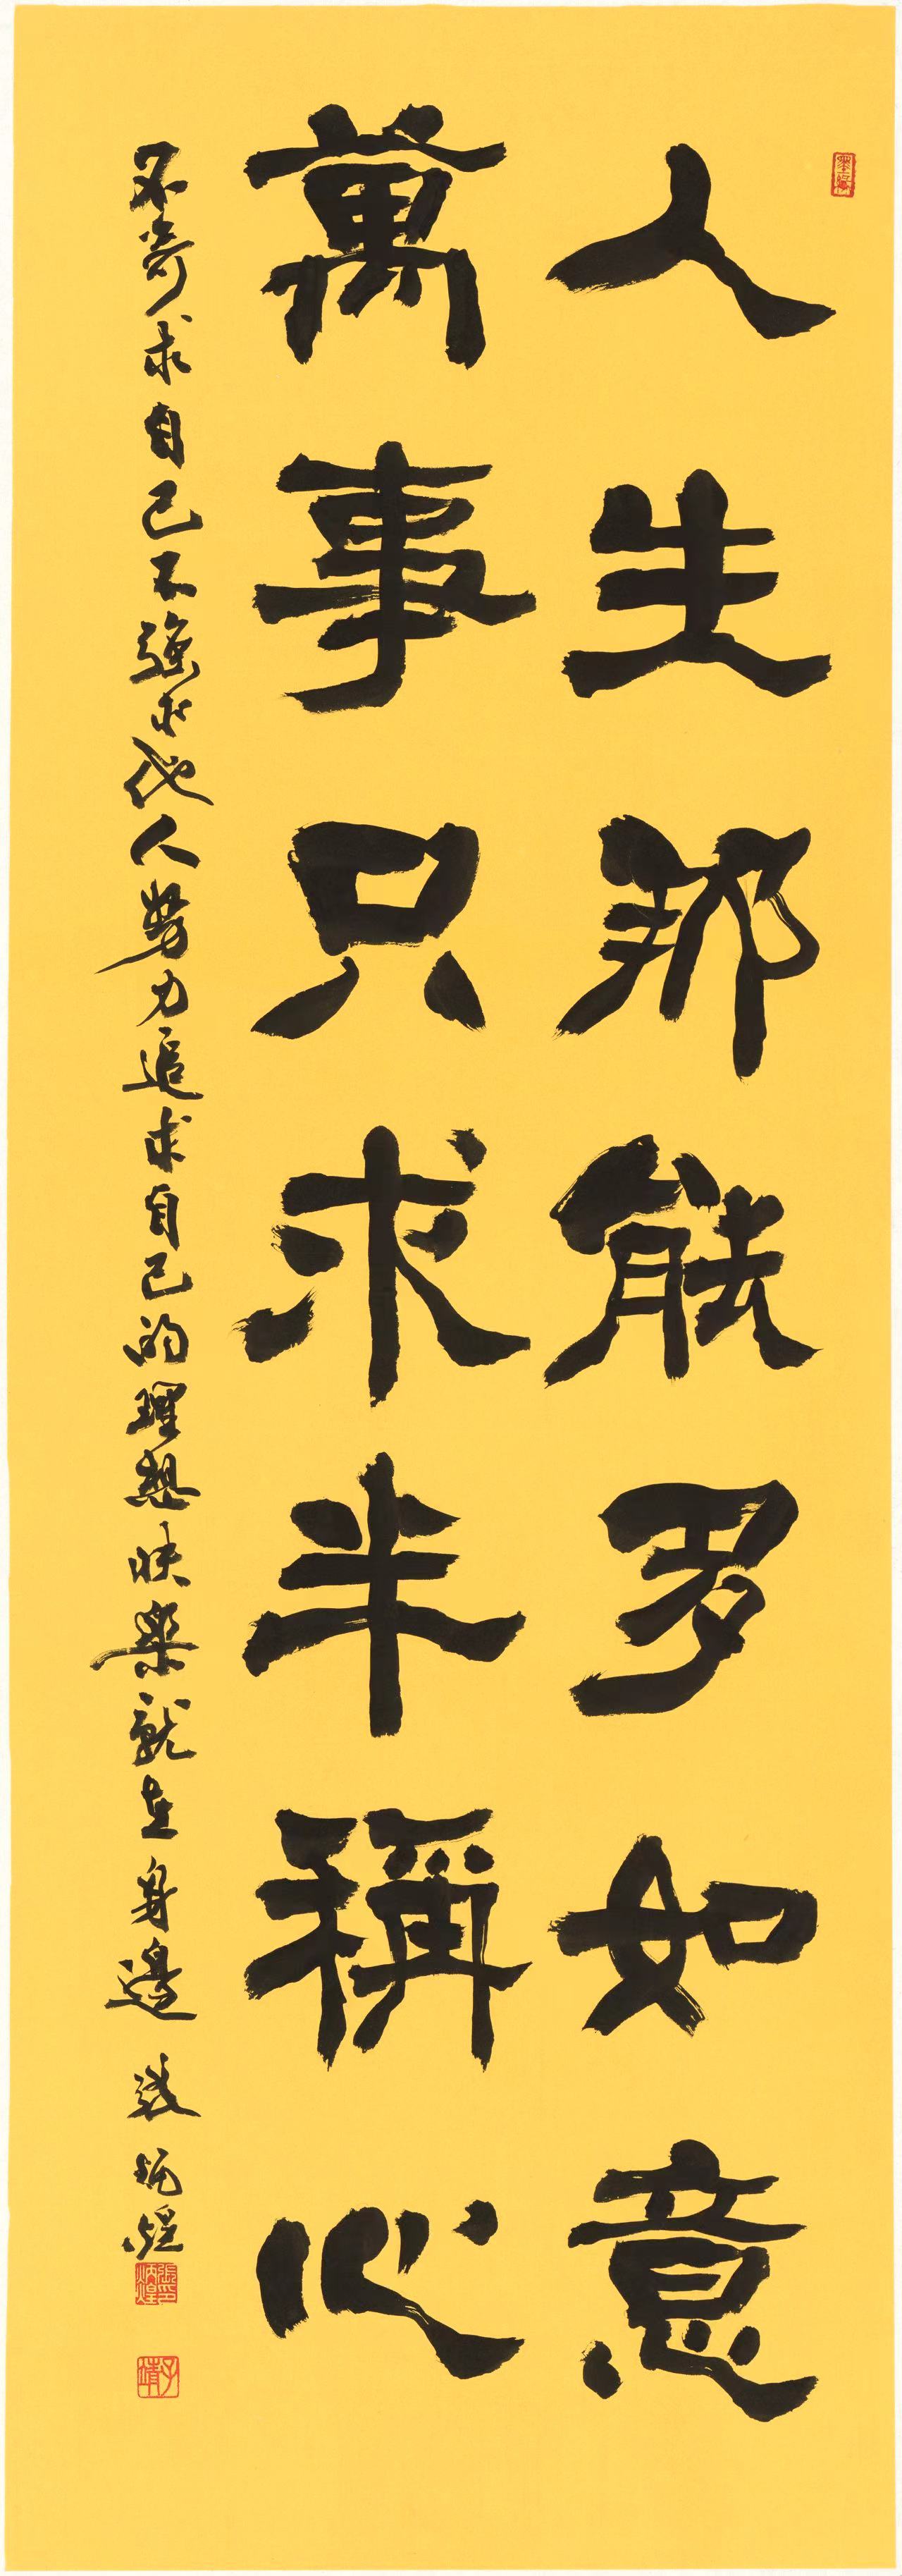 人生那能多如意
萬事只求半稱心
不苛求自己不強求他人努力追求自己的理想快樂就在身邊 張炳煌
張炳煌印
子靖